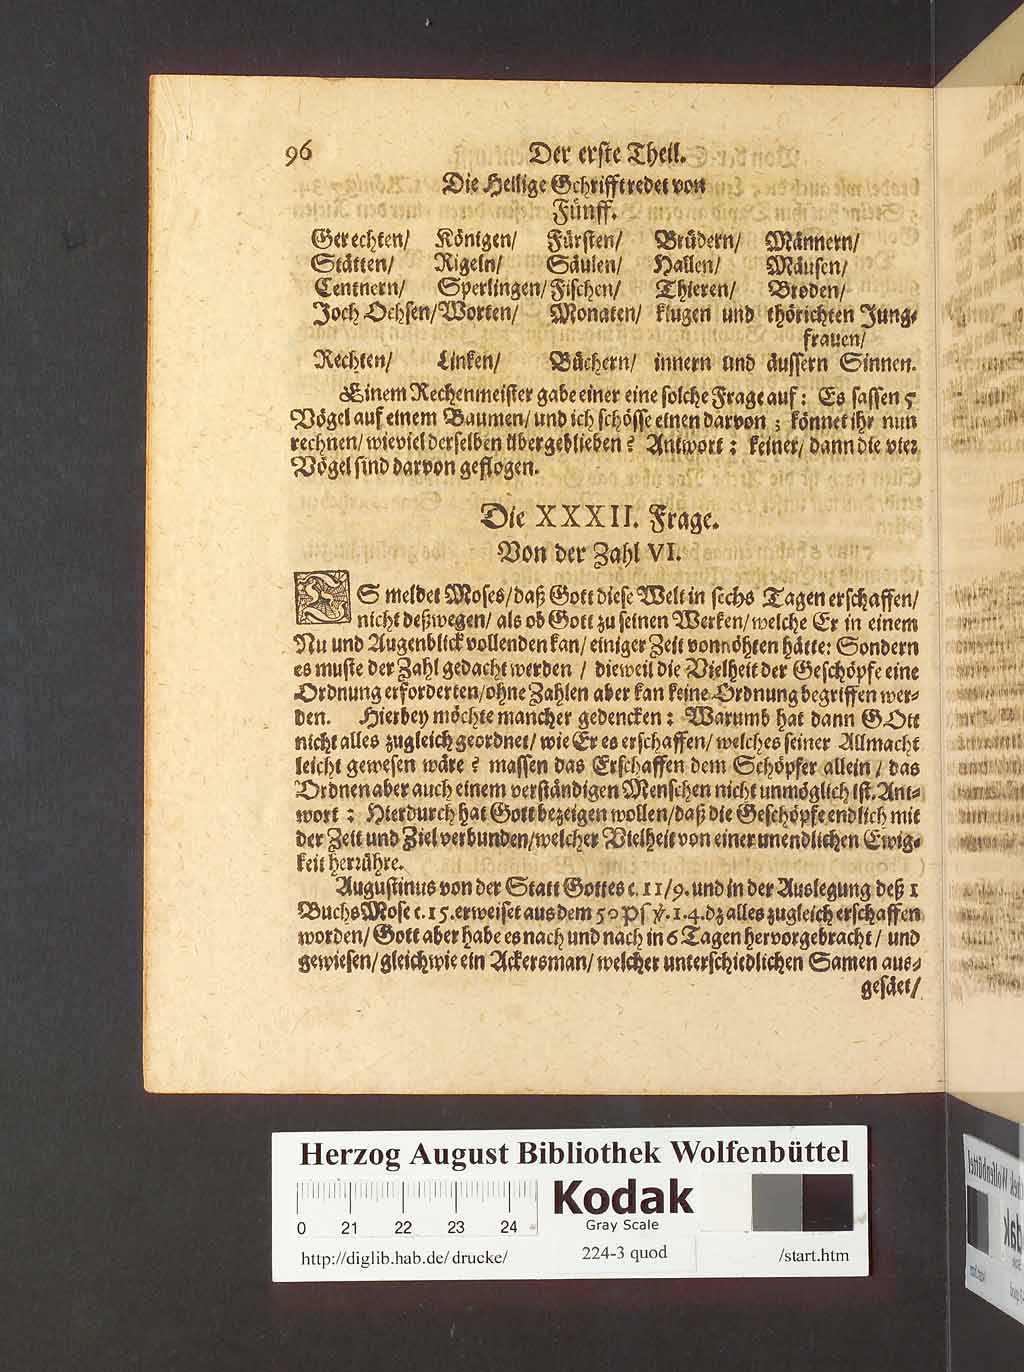 96 Der erste Theil.
Die Heilige Schrifft redet von
Fünff.
Gerechten/ Königen/ Fürsten/ Brüdern/ Männern/
Stätten/ Rigeln/ Säulen/ Hallen/ Mäusen/
Centnern/ Sperlingen/ Fischen/ Thieren/ Broden/
Joch Ochsen/ Worten/ Monaten/ klugen und thörichten Jung-
frauen/
Rechten/ Linken/ Büchern/ innern und äussern Sinnen.
Einem Rechenmeister gabe einer eine solche Frage auf: Es sassen 5
Vögel auf einem Baumen/ und ich schösse einen darvon; könnet ihr nun
rechnen/ wieviel derselben übergeblieben? Antwort: keiner/ dann die vier
Vögel sind darvon geflogen.
Die XXXII. Frage.
Von der Zahl VI.
ES meldet Moses/ daß Gott diese Welt in sechs Tagen erschaffen/
nicht deßwegen/ als ob Gott zu seinen Werken/ welche Er in einem
Nu und Augenblick vollenden kan/ einiger Zeit vonnöhten hätte: Sondern
es muste der Zahl gedacht werden / dieweil die Vielheit der Geschöpfe eine
Ordnung erforderten/ ohne Zahlen aber kan keine Ordnung begriffen wer-
den. Hierbey möchte mancher gedencken: Warumb hat dann GOtt
nicht alles zugleich geordnet/ wie Er es erschaffen/ welches seiner Allmacht
leicht gewesen wäre? massen das Erschaffen dem Schöpfer allein / das
Ordnen aber auch einem verständigen Menschen nicht unmöglich ist. Ant-
wort: Hierdurch hat Gott bezeigen wollen/ daß die Geschöpfe endlich mit
der Zeit und Ziel verbunden/ welcher Vielheit von einer unendlichen Ewig-
keit herrühre.
Augustinus von der Statt Gottes c. 11/9. und in der Auslegung deß 1
Buchs Mose c. 15. erweiset aus dem 50 Ps ℣. 1. 4. dz alles zugleich erschaffen
worden/ Gott aber habe es nach und nach in 6 Tagen hervorgebracht / und
gewiesen/ gleichwie ein Ackersman/ welcher unterschiedlichen Samen aus-
gesäet/
Herzog August Bibliothek Wolfenbüttel
0 21 22 23 24
Kodak
Gray Scale
http://diglib.hab.de/ drucke/ 224-3 quod /start.htm